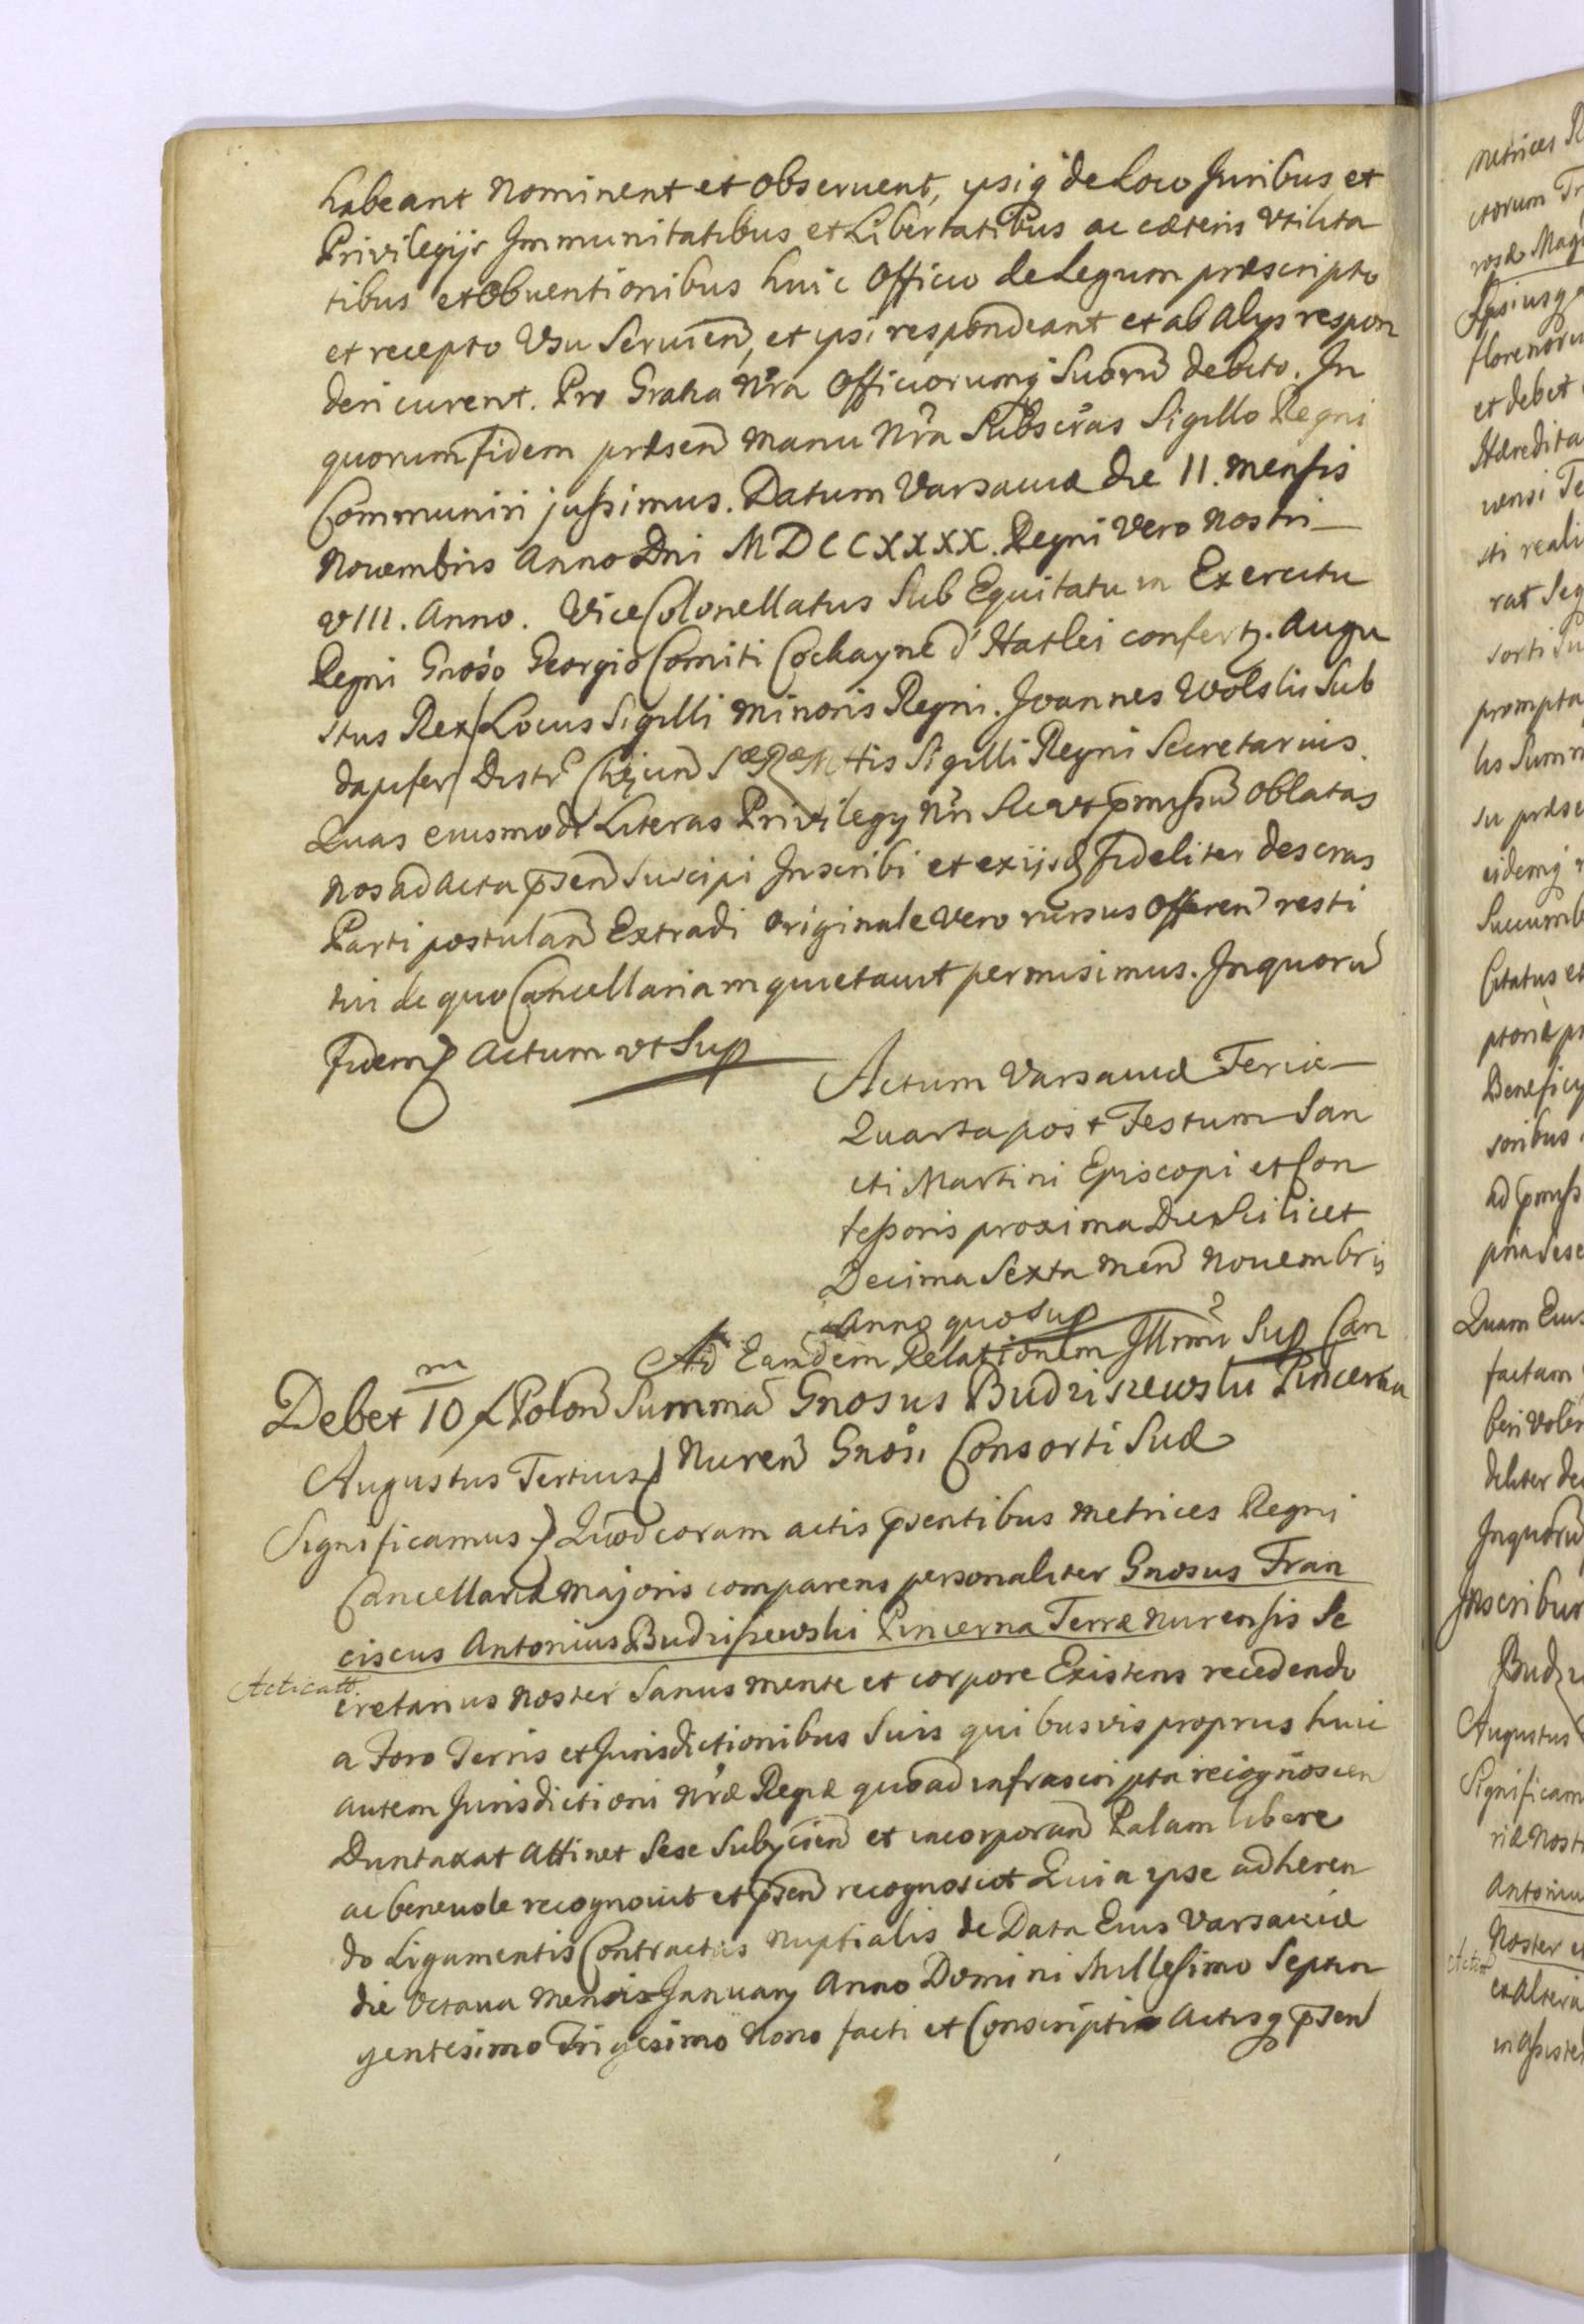 habeant nominent et observent, ipsiq de Loco Juribus et
Privilegijs Immunitatibus et Libertatibus ac cæteris Utilita
tibus et Obventionibus huic Officio de Legum præscripto
et recepto Usu Servien, et ipsi respondeant et ab Alys respon
deri curent. Pro Gratia Nra Officiorumq Suorũ debito. In
quorum fidem præsen manu Nra Subscras Sigillo Regni
Communiri jussimus. Datum Varsaviæ die 11. mensis
Novembris Anno Dni MDCCXXXX. Regni Vero Nostri
VIII. Anno. Vice Colonellatus Sub Equitatu in Exercitu
Regni Gnoso Georgio Comiti Cockayne d'Hatlei confert. Augu
stus Rex / Locus Sigilli minoris Regni. Joannes Wolski Sub
dapifer Distr Sæ Ræ Mttis Sigilli Regni Secretarius.
Quas eiusmodi Literas Privilegy Nri Sic ut pmissũ Oblatas
nos ad Acta psen Suscipi Inscribi et ex ijsd fideliter descras
Parti postulan Extradi Originale vero rursus Offeren resti
tui de quo Cancellariam quietavit permisimus. In quorũ
fidem Actum ut Sup
Actum Varsaviæ Feria
Quarta post Festum San
cti Martini Episcopi et Con
fessoris proxima Die Scilicet
Decima Sexta men Novembris
Anno quo Sup
Ad Eamdem Relationem Illrmi Sup Can
m
Debet 10 f Polon Summa Gnosus Budziszewski Pincerna
Nuren Gnosi Consorti Suæ
Augustus Tertius
Significamus Quod coram actis psentibus metrices Regni
Cancellariæ Majoris comparens personaliter Gnosus Fran
ciscus Antonius Budziszewski Pincerna Terræ Nurensis Se
Acticatt.
cretarius Noster Sanus mente et corpore Existens recedendo
a Foro Terris et Jurisdictionibus Suis quibusvis proprys huic
autem Jurisdictioni Nræ Regiæ quoad infrascripta recognoscen
Duntaxat Attinet Sese Subycien et incorporan Palam libere
ac benevole recognovit et psen recognoscit Quia ipse adheren
do Ligamentis Contractus Nuptialis de Data Eius Varsaviæ
die Octava Mensis January Anno Domini Millesimo Septin
gentesimo Trigesimo Nono facti et Conscripti Actisq psen